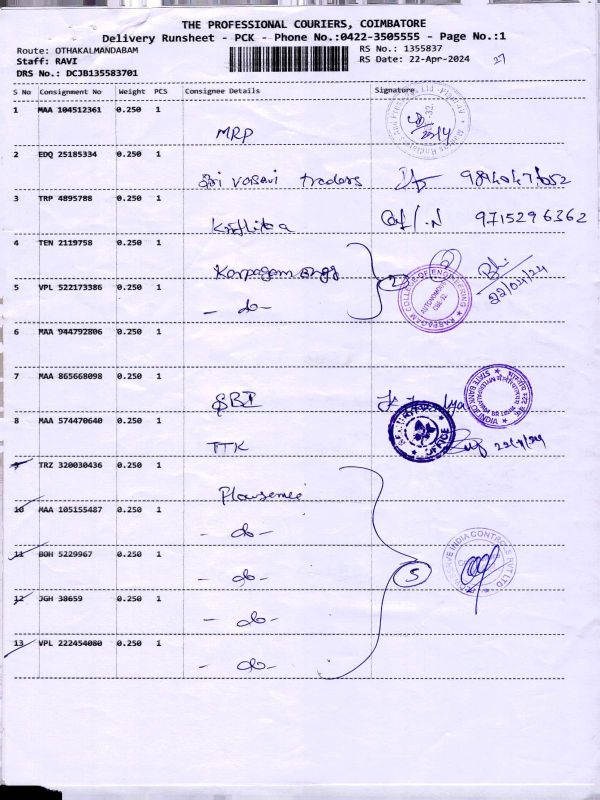 THE PROFESSIONAL COURIERS, COIMBATORE
Delivery Runsheet - PCK - Phone No.:0422-3505555 - Page No.:1
Route: OTHAKALMANDABAM RS No.: 1355837
Staff: RAVI RS Date: 22-Apr-2024 27
DRS No.: DCJB135583701
S No Consignment No Weight PCS Consignee Details Signature
1 MAA 104512361 0.250 1
MRP
2 EDQ 25185334 0.250 1
Sri vasavi traders
3 TRP 4895788 0.250 1
9715296362
4 TEN 2119758 0.250 1
Karpagam engg 2
KARPAGAM COLLEGE OF ENGINEERING
AUTONOMOUS
CBE-32
22/04/24
5 VPL 522173386 0.250 1
- do -
6 MAA 944792806 0.250 1
7 MAA 865668098 0.250 1
SBI
STATE BANK OF INDIA
8 MAA 574470640 0.250 1
TTK
SECURITY OFFICE
22/4/24
9 TRZ 320030436 0.250 1
10 MAA 105155487 0.250 1
- do -
11 BOH 5229967 0.250 1
- do - 5
INDIA CONTROLS PVT LTD
12 JGH 38659 0.250 1
- do -
13 VPL 222454080 0.250 1
- do -